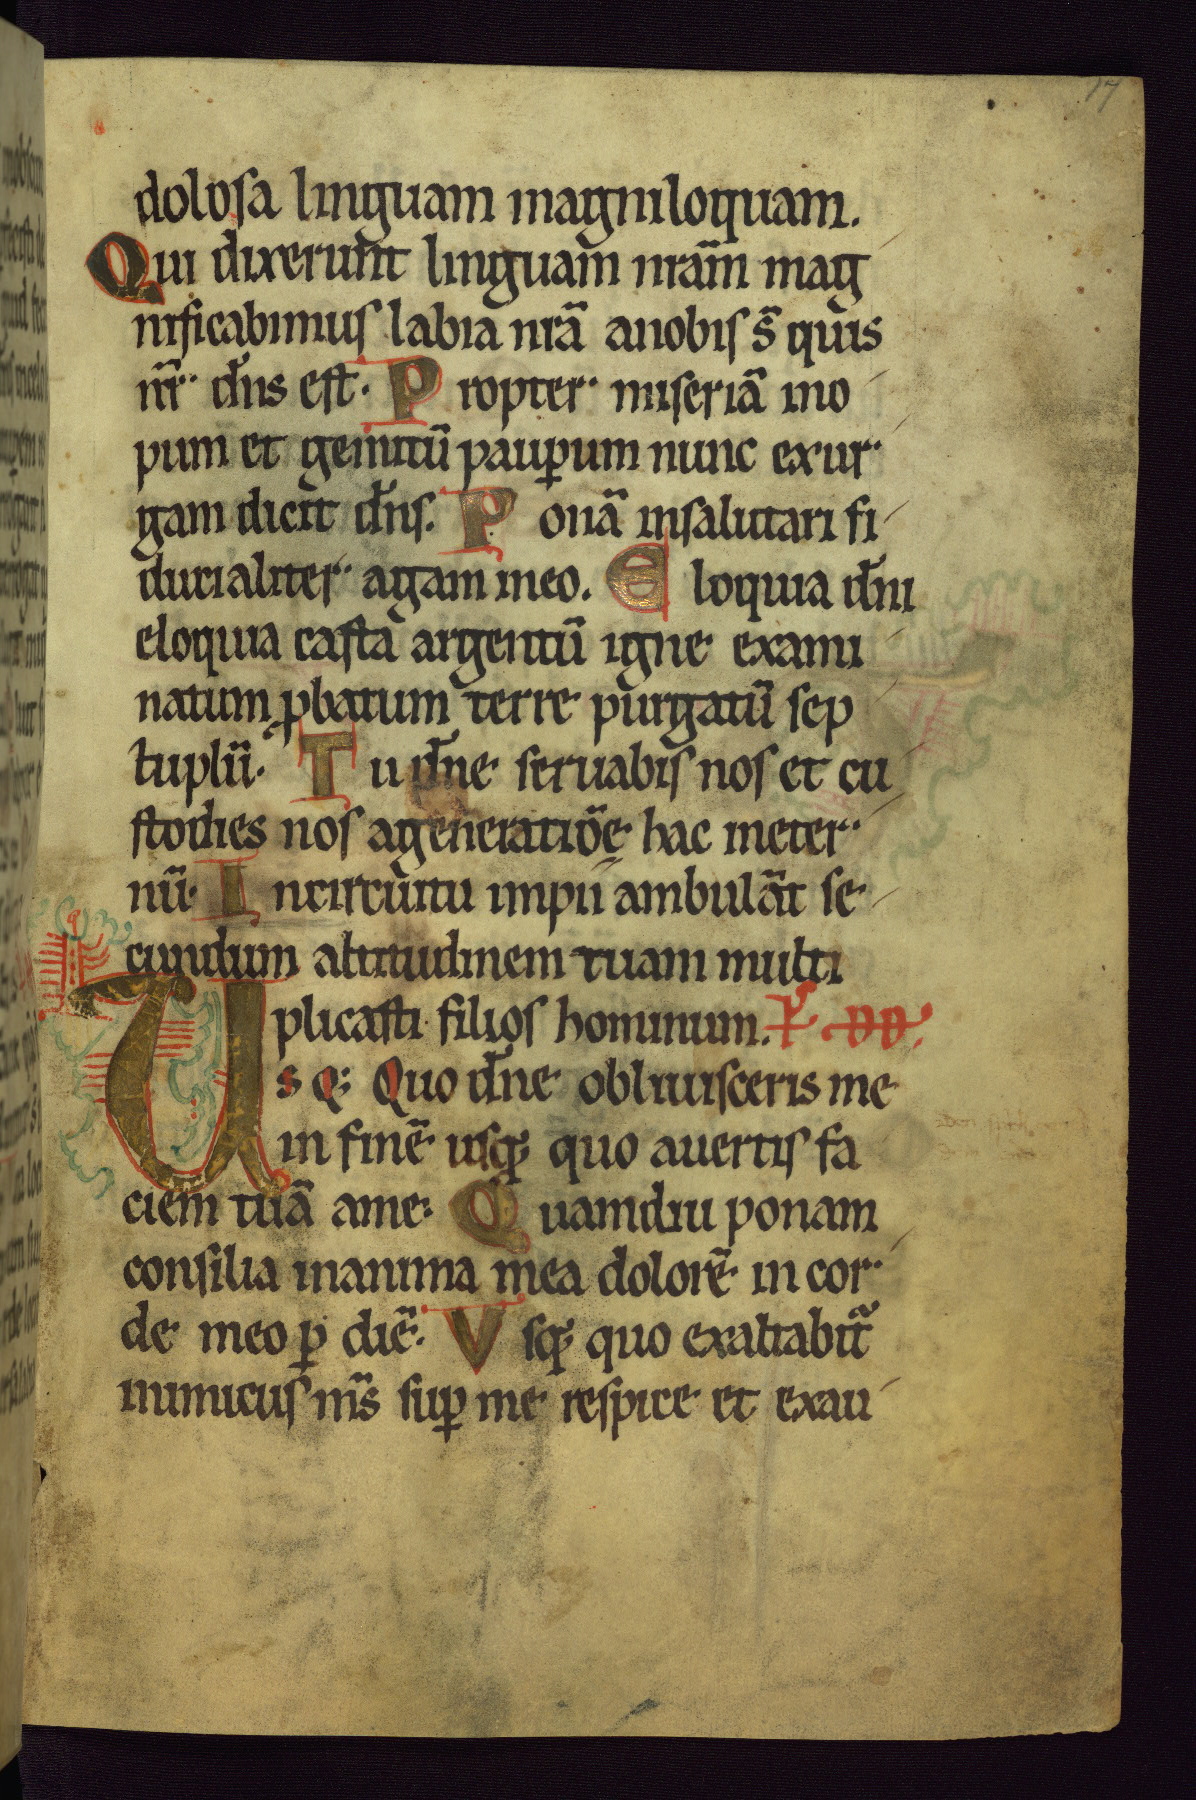 17
dolosa linguam magniloquam.
Qui dixerunt linguam nrām mag
nificabimus labia nrā anobis s̄ quis
nr̄ dn̄s est. Propter miseriā ino
pum et gemitū paup̱um nunc exur
gam dicit dn̄s. Ponā insalutari fi
ducialiter agam meo. Eloquia dn̄i
eloquia casta argentū igne exami
natum ꝓbatum terre purgatū sep
tuplū. Tu dn̄e seruabis nos et cu
stodies nos ageneratiōe hac meter
nū. Incircuitu impii ambulāt se
cundum altitudinem tuam multi
plicasti filios hominum. P̄ DD.
Usq; Quo dn̄e obliuisceris me
in finē usq; quo auertis fa
ciem tuā ame. Quamdiu ponam
consilia inanima mea dolorē in cor
de meo ꝑ diē. Vsq; quo exaltabit᷑
inimicus ms̄ suꝑ me respice et exau